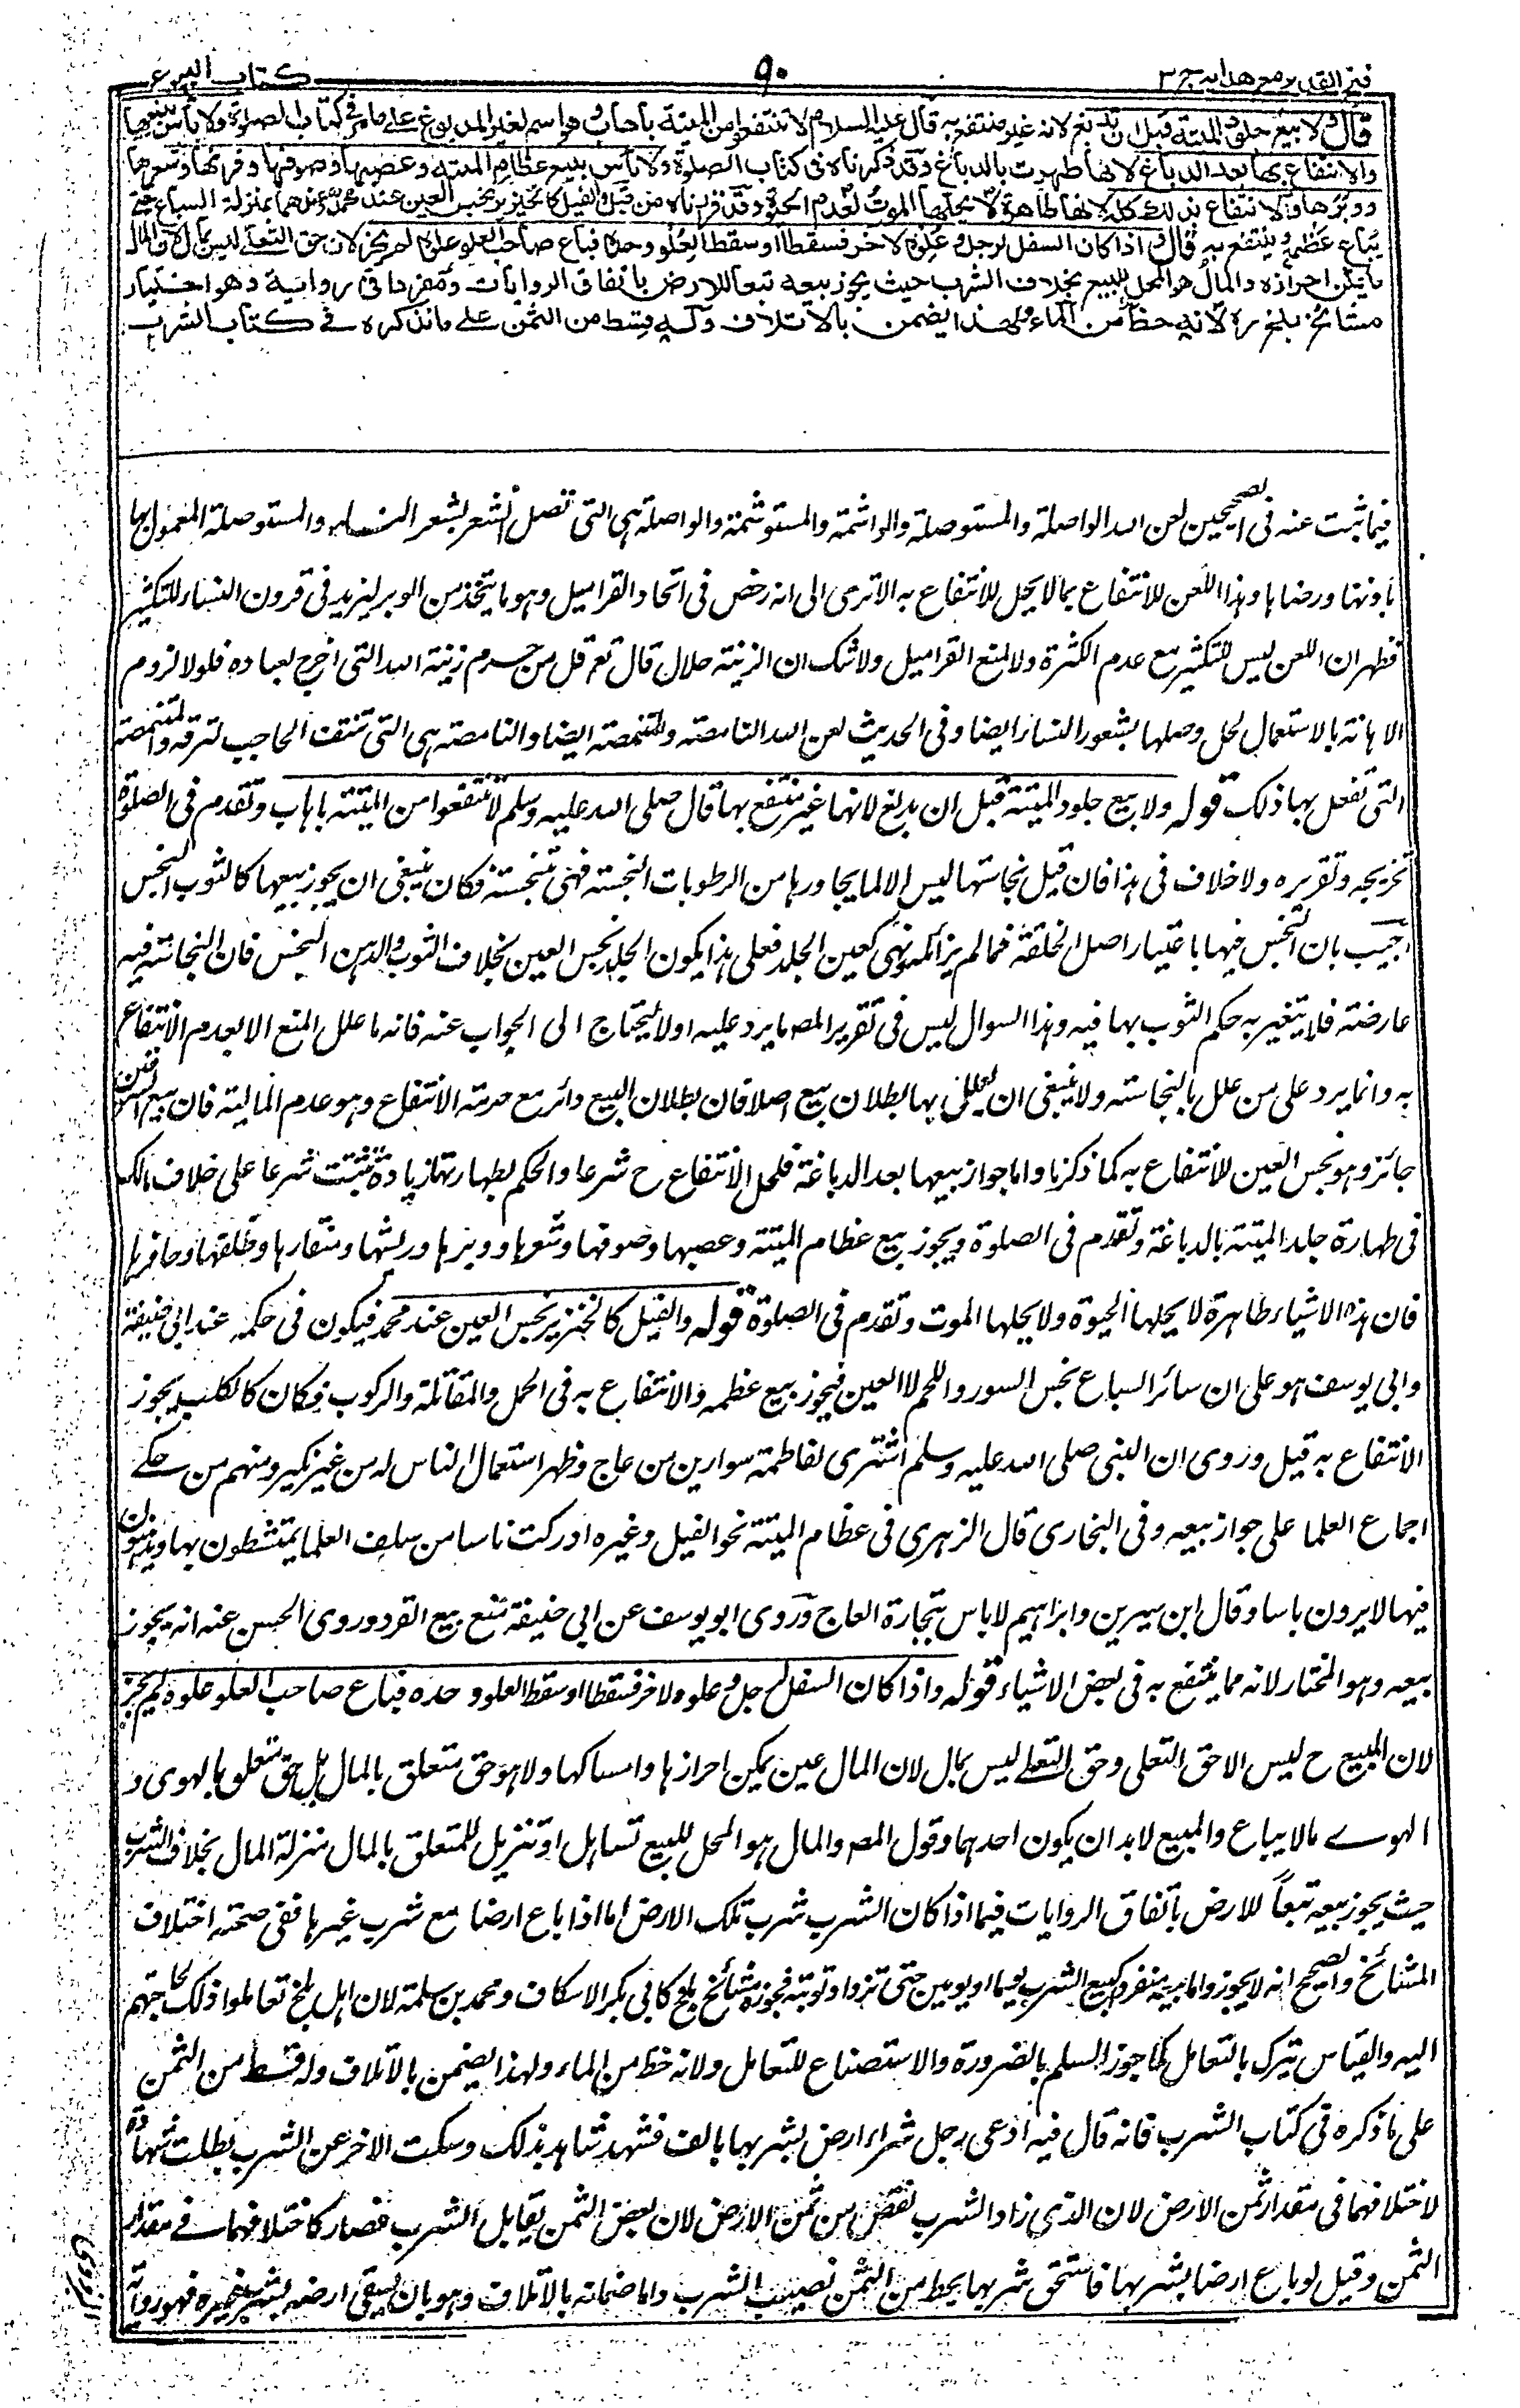 فتح القدير مع هدايه ج ٣
٩٠
كتاب البيوع
قال ولا بيع جلود الميتة قبل ان تدبغ لانه غير منتفع به قال عليه السلام لا تنتفعوا من الميتة بأهاب وهو اسم لغير المدبوغ على ما مر في كتاب الصلوة ولا بأس ببيعها
والانتفاع بها بعد الدباغ لانها طهرت بالدباغ وقد ذكرناه في كتاب الصلوة ولا بأس ببيع عظام الميتة وعصبها وصوفها وقرنها وشعرها
ووبرها والانتفاع بذلك كله لانها طاهرة لا يحلها الموت لعدم الحيوة وقد قررناه من قبل والفيل كالخنزير نجس العين عند محمد وعندهما بمنزلة السباع حتى
يباع عظمه وينتفع به قال واذا كان السفل لرجل وعلوه لاخر فسقطا او سقط العلو وحده فباع صاحب العلو علوه لم يجز لان حق التعلے ليس بمال لان المال
ما يمكن احرازه والمال هو المحل للبيع بخلاف الشرب حيث يجوز بيعه تبعا للارض باتفاق الروايات ومفردا في رواية وهو اختيار
مشائخ بلخ ره لانه حظ من الماء ولهذا يضمن بالاتلاف وله قسط من الثمن على ما نذكره في كتاب الشرب
فيما ثبت عنه فى الصحيحين لعن الله الواصلة والمستوصلة والواشمة والمستوشمة والواصلة هى التى تصل الشعر بشعر النساء والمستوصلة المعمول بها
باذنها ورضاها وهذا اللعن للانتفاع بما لا يحل للانتفاع به الاترى الى انه رخص فى اتخاذ القراميل وهو ما يتخذ من الوبر ليزيد فى قرون النساء للتكثير
فظهر ان اللعن ليس للتكثير مع عدم الكثرة ولا لمنع القراميل ولا شك ان الزينة حلال قال تع قل من حرم زينة الله التى اخرج لعباده فلولا لزوم
الاهانة بالاستعمال لحل وصلها بشعور النساء ايضا وفى الحديث لعن الله النامصة والمتنمصة ايضا والنامصة هى التى تنتف الحاجب لترقه والمتنمصة
التى تفعل بها ذلك قوله ولا بيع جلود الميتة قبل ان يدبغ لانها غير منتفع بها قال صلى الله عليه وسلم لا تنتفعوا من الميتة باهاب وتقدم فى الصلوة
تخريجه وتقريره ولا خلاف فى هذا فان قيل نجاستها ليس الا لما يجاورها من الرطوبات النجسة فهى متنجسة فكان ينبغى ان يجوز بيعها كالثوب النجس
اجيب بان التنجس فيها باعتبار اصل الخلقة فما لم يزائله فهى كعين الجلد فعلى هذا يكون الجلد نجس العين بخلاف الثوب والدهن النجس فان النجاسة فيه
عارضة فلا يتغير به حكم الثوب بها فيه وهذا السوال ليس فى تقرير المص ما يرد عليه اولا ليحتاج الى الجواب عنه فانه ما علل المنع الا بعدم الانتفاع
به وانما يرد على من علل بالنجاسة ولا ينبغى ان يعلل بها بطلان بيع اصلا فان بطلان البيع دائر مع حرمة الانتفاع وهو عدم المالية فان بيع السرقين
جائز وهو نجس العين للانتفاع به كما ذكرنا واما جواز بيعها بعد الدباغة فلحل الانتفاع ح شرعا والحكم بطهارتها زيادة ثبتت شرعا على خلاف مالك
فى طهارة جلد الميتة بالدباغة وتقدم فى الصلوة ويجوز بيع عظام الميتة وعصبها وصوفها وشعرها ووبرها وريشها ومنقارها وظلفها وحافرها
فان هذه الاشياء طاهرة لا يحلها الحيوة ولا يحلها الموت وتقدم فى الصلوة قوله والفيل كالخنزير نجس العين عند محمد فيكون فى حكمه عند ابى حنيفة
وابى يوسف هو على ان سائر السباع نجس السور واللحم لا العين فيجوز بيع عظمه والانتفاع به فى الحمل والمقاتلة والركوب فكان كالكلب يجوز
الانتفاع به قيل وروى ان النبى صلى الله عليه وسلم اشترى لفاطمة سوارين من عاج وظهر استعمال الناس له من غير نكير ومنهم من حكے
اجماع العلما على جواز بيعه وفى البخارى قال الزهرى فى عظام الميتة نحو الفيل وغيره ادركت ناسا من سلف العلما يمتشطون بها ويدهنون
فيها لا يرون باسا وقال ابن سيرين وابراهيم لا باس بتجارة العاج وروى ابو يوسف عن ابى حنيفة منع بيع القرد وروى الحسن عنه انه يجوز
بيعه وهو المختار لانه مما ينتفع به فى بعض الاشياء قوله واذا كان السفل لرجل وعلوه لاخر فسقطا او سقط العلو وحده فباع صاحب العلو علوه لم يجز
لان المبيع ح ليس الا حق التعلى وحق التعلے ليس بمال لان المال عين يمكن احرازها وامساكها ولا هو حق متعلق بالمال بل حق متعلق بالهوى و
الهوے مالا يباع والمبيع لابد ان يكون احدهما وقول المص والمال هو المحل للبيع تساهل او تنزيل للمتعلق بالمال منزلة المال بخلاف الشرب
حيث يجوز بيعه تبعاً للارض باتفاق الروايات فيما اذا كان الشرب شرب تلك الارض اما اذا باع ارضا مع شرب غيرها ففى صحته اختلاف
المشائخ والصحيح انه لا يجوز واما بيعه منفردا كبيع الشرب يوما او يومين حتى تزداد نوبته فجوزه مشائخ بلخ كابى بكر الاسكاف ومحمد بن سلمة لان اهل بلخ تعاملوا ذلك لحاجتهم
اليه والقياس يترك بالتعامل كما جوز السلم بالضرورة والاستصناع للتعامل ولانه حظ من الماء ولهذا يضمن بالاتلاف وله قسط من الثمن
على ما ذكره فى كتاب الشرب فانه قال فيه ادعى رجل شراء ارض بشربها بالف فشهد شاهد بذلك وسكت الاخر عن الشرب بطلت شهادة
لاختلافهما فى مقدار ثمن الارض لان الذى زاد الشرب نقص من ثمن الارض لان بعض الثمن يقابل الشرب فصار كاختلافهما فے مقدار
الثمن وقيل لو باع ارضا بشربها فاستحق شربها يحط من الثمن نصيب الشرب واما ضمانه بالاتلاف وهو بان يسقى ارضه بشرب غيره فهو رواية
البزدوى